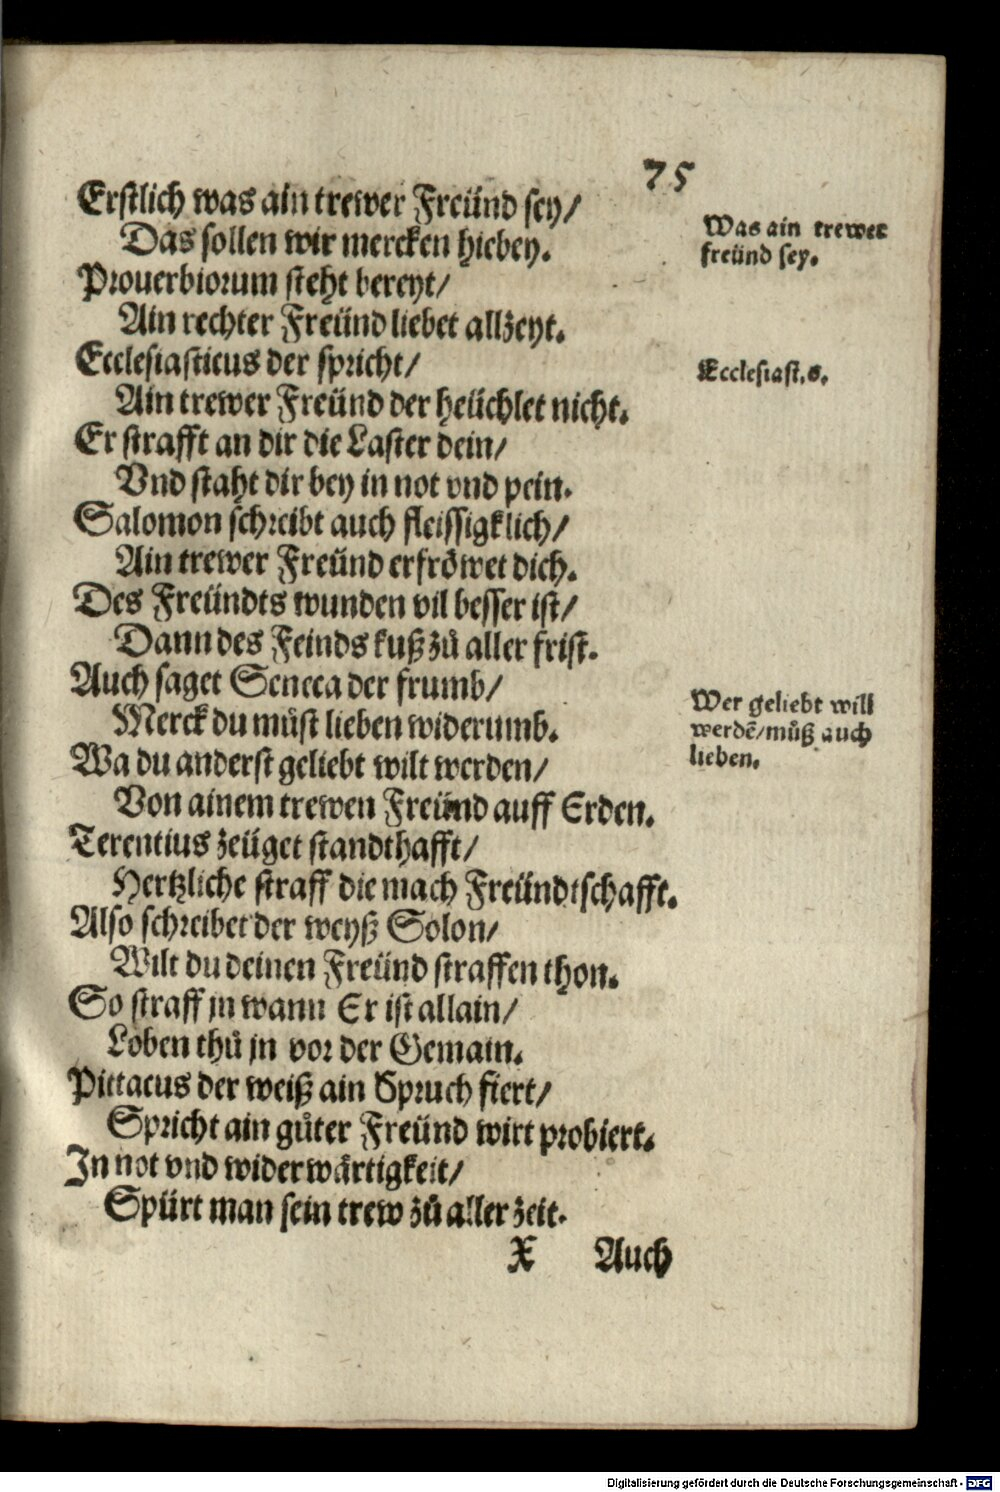 75
Erstlich was ain trewer Freünd sey/
Das sollen wir mercken hiebey.
Was ain trewer
freünd sey.
Prouerbiorum steht bereyt/
Ain rechter Freünd liebet allzeyt.
Ecclesiasticus der spricht/
Ecclesiast. 6.
Ain trewer Freünd der heüchlet nicht.
Er strafft an dir die Laster dein/
Vnd staht dir bey in not vnd pein.
Salomon schreibt auch fleissigklich/
Ain trewer Freünd erfröwet dich.
Des Freündts wunden vil besser ist/
Dann des Feinds kuß zů aller frist.
Auch saget Seneca der frumb/
Merck du můst lieben widerumb.
Wer geliebt will
werdẽ/můß auch
lieben.
Wa du anderst geliebt wilt werden/
Von ainem trewen Freünd auff Erden.
Terentius zeüget standthafft/
Hertzliche straff die mach Freündtschafft.
Also schreibet der weyß Solon/
Wilt du deinen Freünd straffen thon.
So straff jn wann Er ist allain/
Loben thů jn vor der Gemain.
Pittacus der weiß ain Spruch fiert/
Spricht ain gůter Freünd wirt probiert.
In not vnd widerwärtigkeit/
Spürt man sein trew zů aller zeit.
X Auch
Digitalisierung gefördert durch die Deutsche Forschungsgemeinschaft - DFG